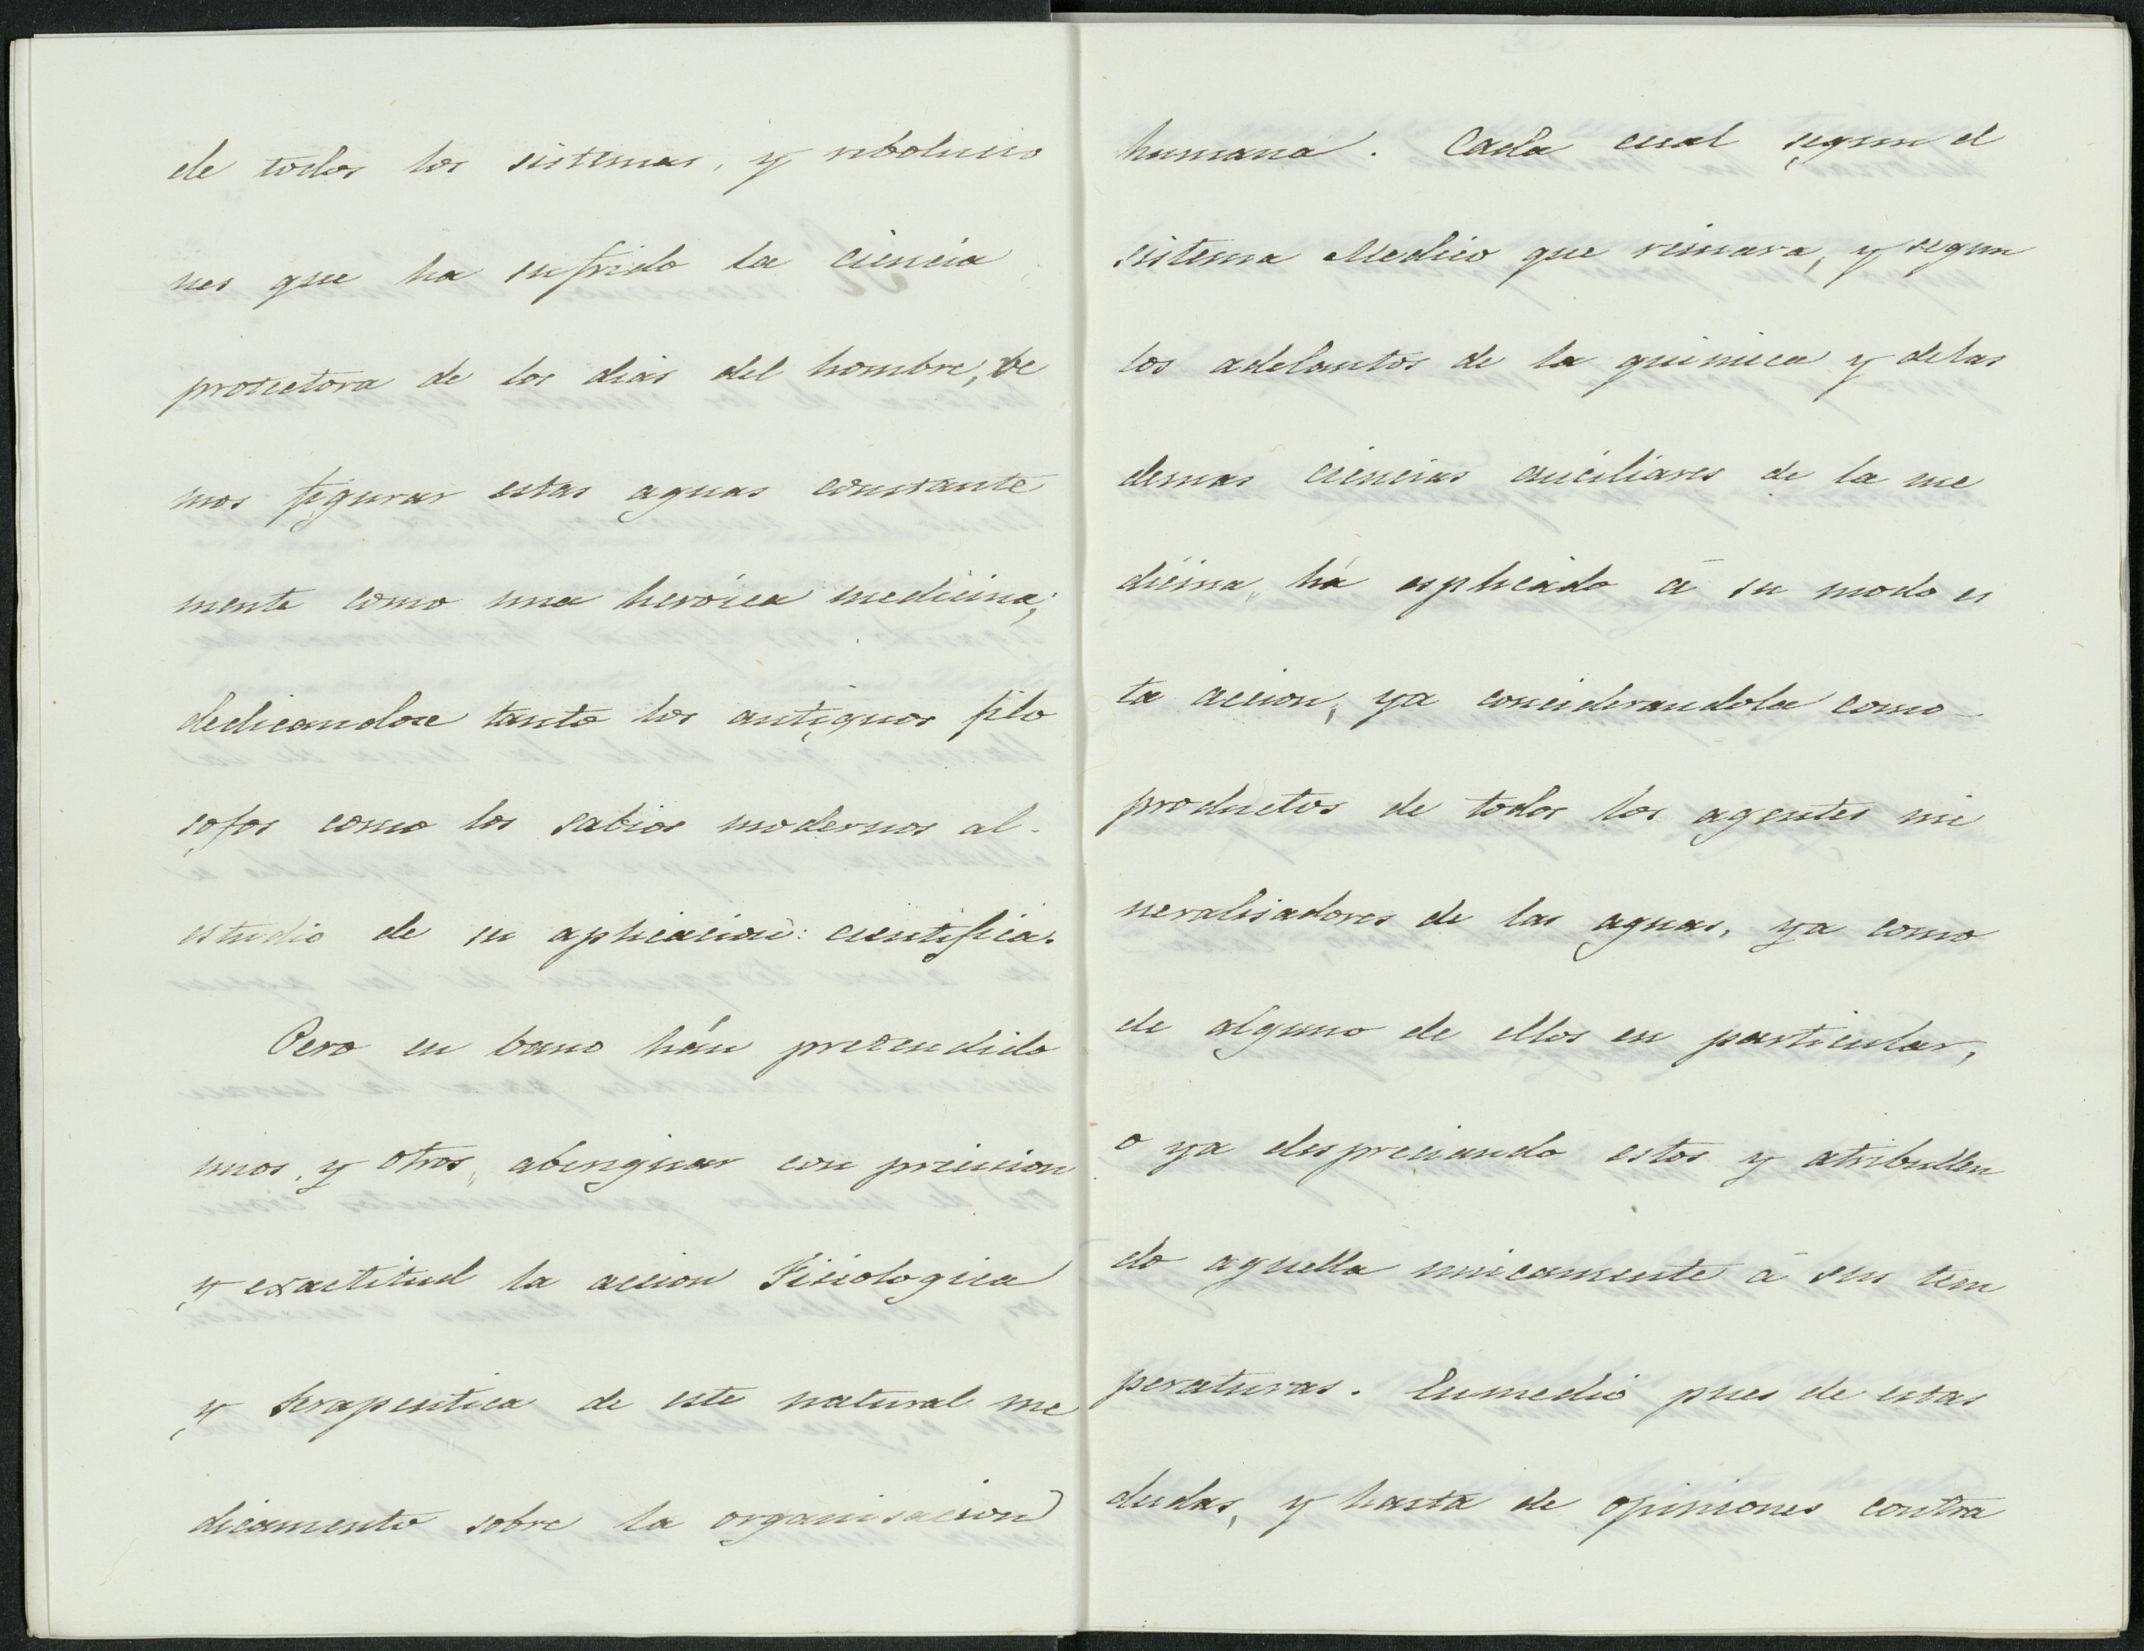 de todos los sistemas, y rebolucio
nes que ha sufrido la ciencia
protectora de los dias del hombre, ve
mos figurar estas aguas constante
mente como una heróica medicina;
dedicandose tanto los antiguos filo
sofos como los sabios modernos al
estudio de su aplicacion cientifica.
Pero en bano hán pretendido
unos, y otros, aberiguar con precicion
y exactitud la accion Fisiologica
y terapeutica de este natural me
dicamento sobre la organisacion
humana. Cada cual segun el
sistema Medico que reinara, y segun
los adelantos de la quimica y delas
demas ciencias auciliares de la me
dicina, há esplicado á su modo es
ta accion, ya conciderandola como
productos de todos los agentes mi
neralisadores de las aguas, ya como
de alguno de ellos en particular,
o ya despreciando estos y atribullen
do aquella unicamente á sus tem
peraturas. Enmedio pues de estas
dudas, y hasta de opiniones contra